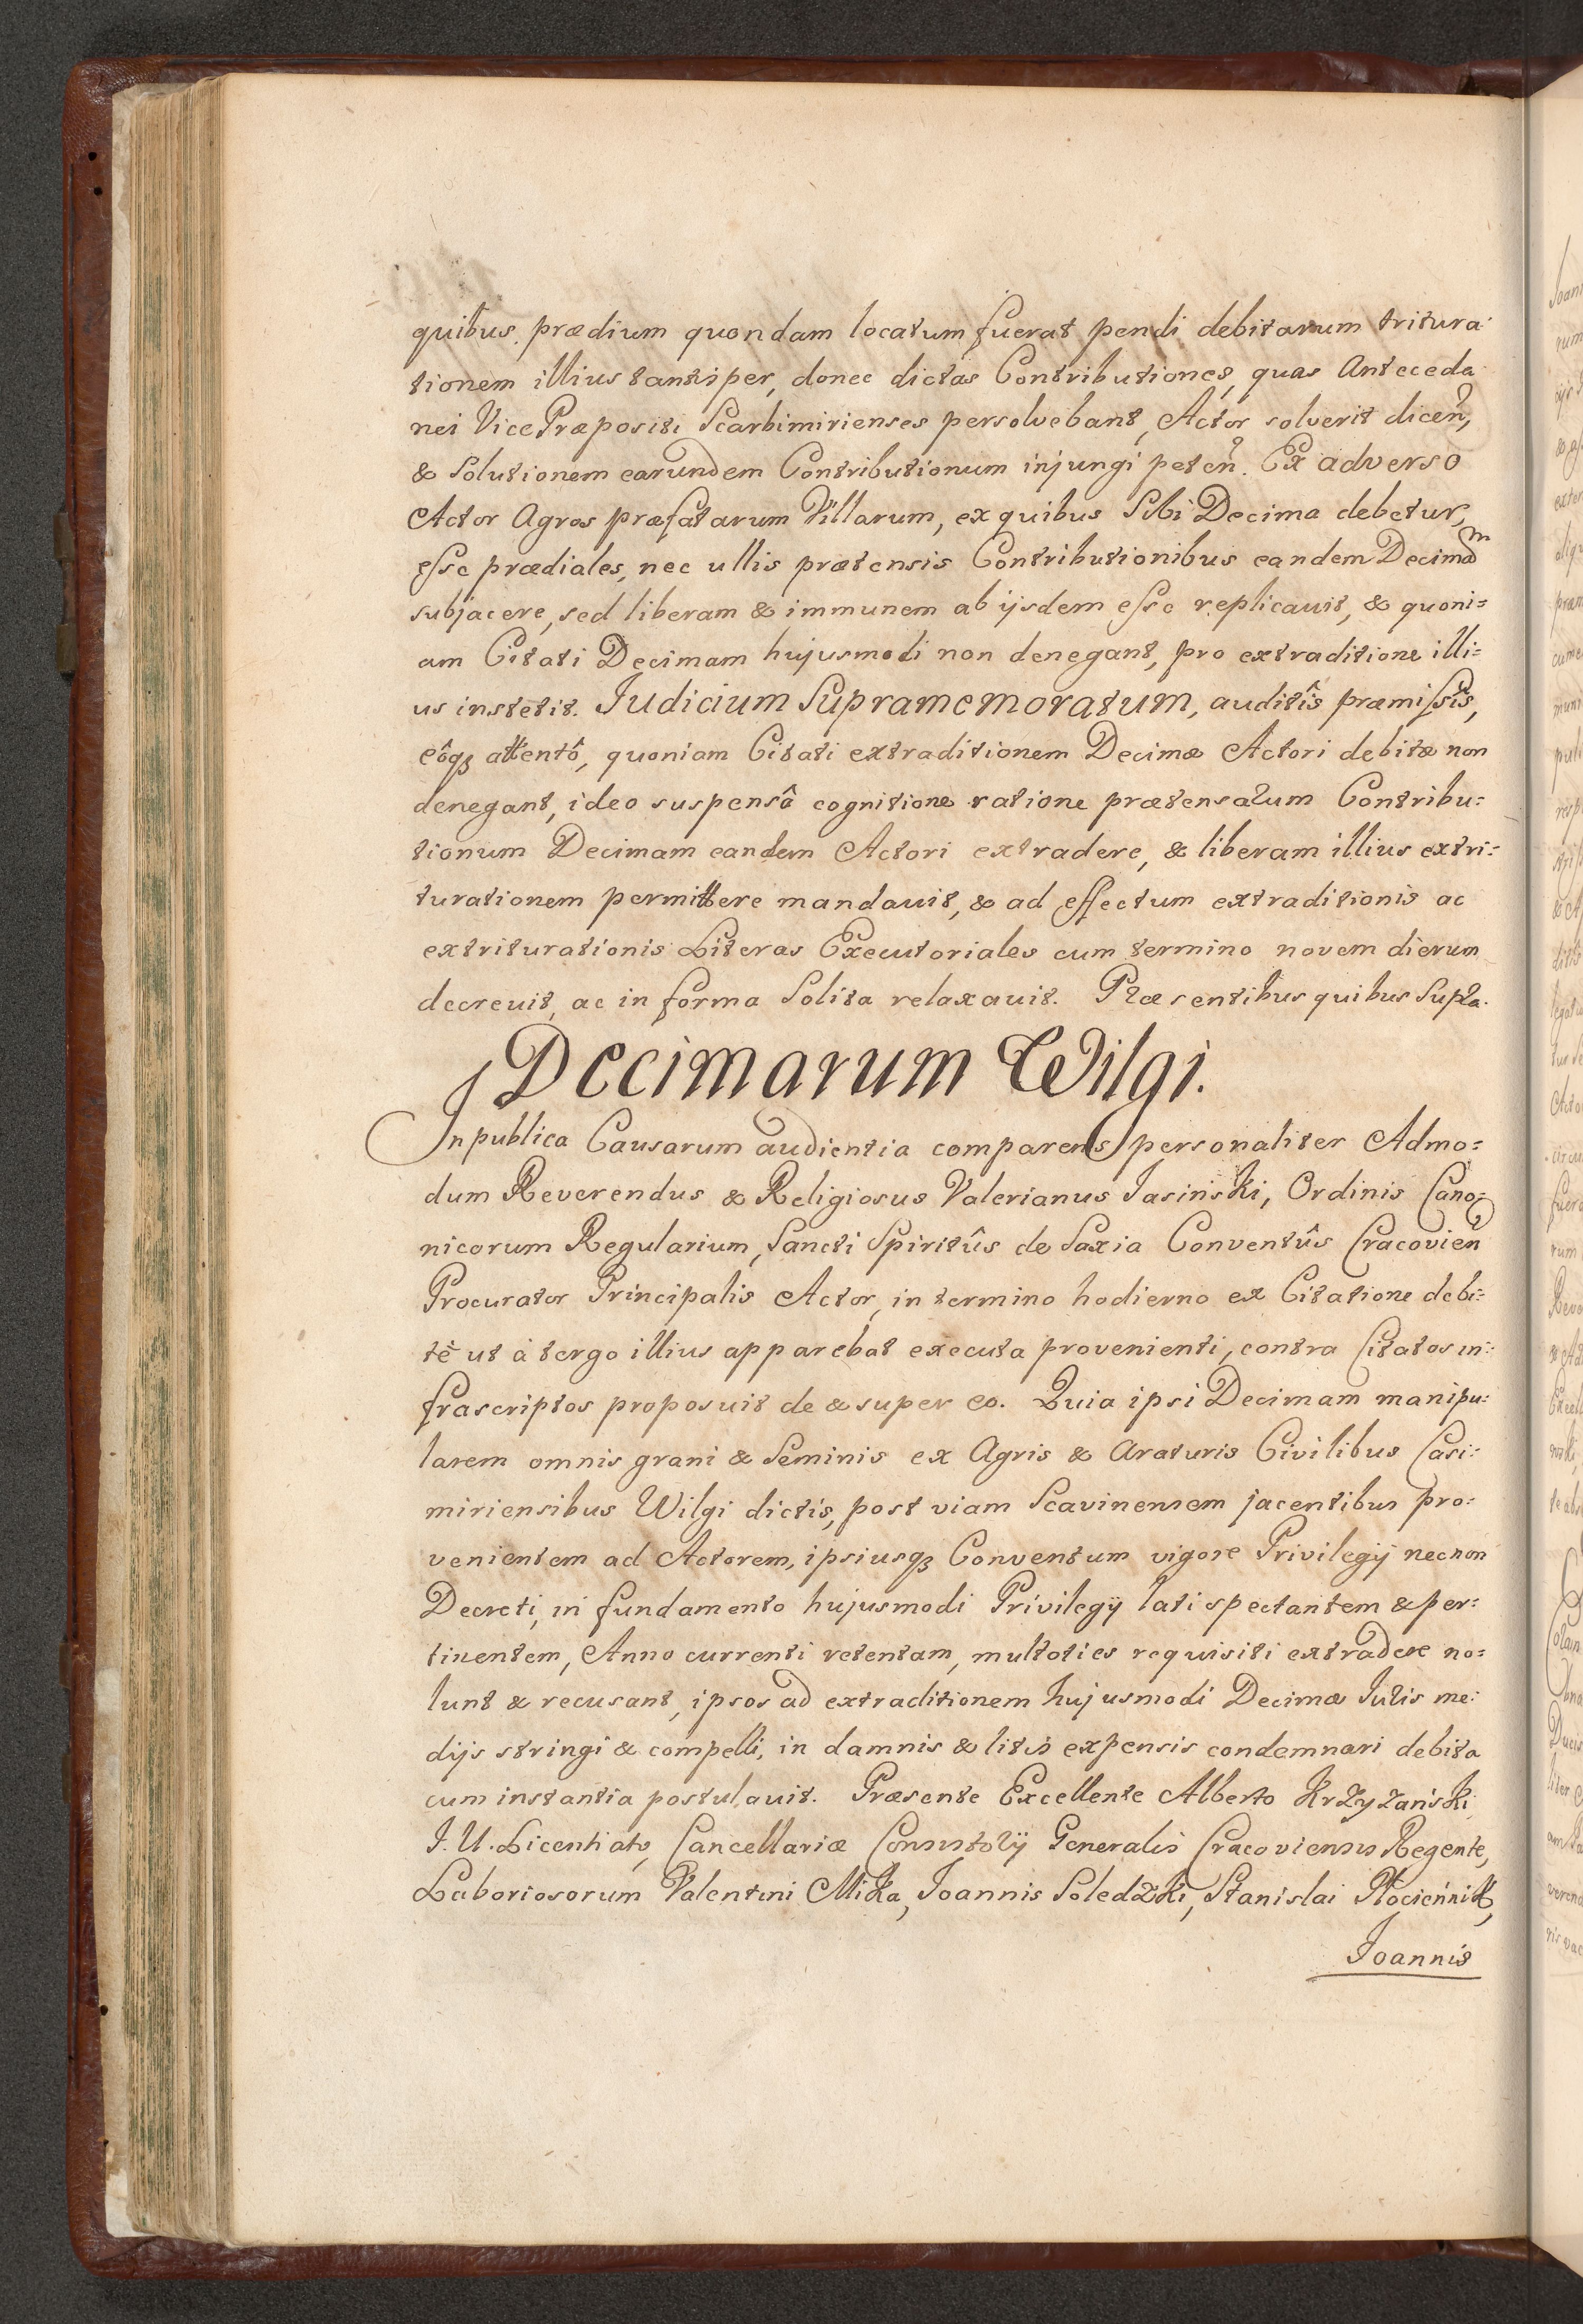 quibus prædium quondam locatum fuerat pendi debitarum tritura
tionem illius tantisper, donec dictas Contributiones, quas Anteceda
nei Vice Præpositi Scarbimirienses persolvebant, Actor solverit dicen̄,
& Solutionem earundem Contributionum injungi peten̄. Ex adverso
Actor Agros præfatarum Villarum, ex quibus Sibi Decima debetur,
esse prædiales, nec ullis prætensis Contributionibus eandem Decimam
subjacere, sed liberam & immunem ab ijsdem esse replicavit, & quoni=
am Citati Decimam hujusmodi non denegant, pro extraditione illi=
us institit. Judicium Supramemoratum, auditîs præmissîs,
eôqȝ attentô, quoniam Citati extraditionem Decimæ Actori debitæ non
denegant, ideo suspensâ cognitione ratione prætensarum Contribu=
tionum Decimam eandem Actori extradere, & liberam illius extri=
turationem permittere mandavit, & ad effectum extraditionis ac
extriturationis Literas Executoriales cum termino novem dierum
decrevit, ac in forma Solita relaxavit. Præsentibus quibus Supra.
Decimarum Wilgi.
In publica Causarum audientia comparens personaliter Admo=
dum Reverendus & Religiosus Valerianus Jasiński, Ordinis Cano=
nicorum Regularium, Sancti Spiritûs de Saxia Conventûs Cracovien̄
Procurator Principalis Actor, in termino hodierno ex Citatione debi=
tè ut à tergo illius apparebat executa provenienti, contra Citatos in=
frascriptos proposuit de & super eo. Quia ipsi Decimam manipu=
larem omnis grani & Seminis ex Agris & Araturis Civilibus Casi=
miriensibus Wilgi dictis, post viam Scavinensem jacentibus pro=
venientem ad Actorem, ipsiusqȝ Conventum vigore Privilegij necnon
Decreti, in fundamento hujusmodi Privilegij lati spectantem & per=
tinentem, Anno currenti retentam, multoties requisiti extradere no=
lunt & recusant, ipsos ad extraditionem hujusmodi Decimæ Juris me=
dijs stringi & compelli, in damnis & litis expensis condemnari debita
cum instantia postulavit. Præsente Excellente Alberto Krzyżański
J. U. Licentiato, Cancellariæ Consistorij Generalis Cracoviensis Regente,
Laboriosorum Valentini Mika, Joannis Soledzki, Stanislai Płociennik,
Joannis